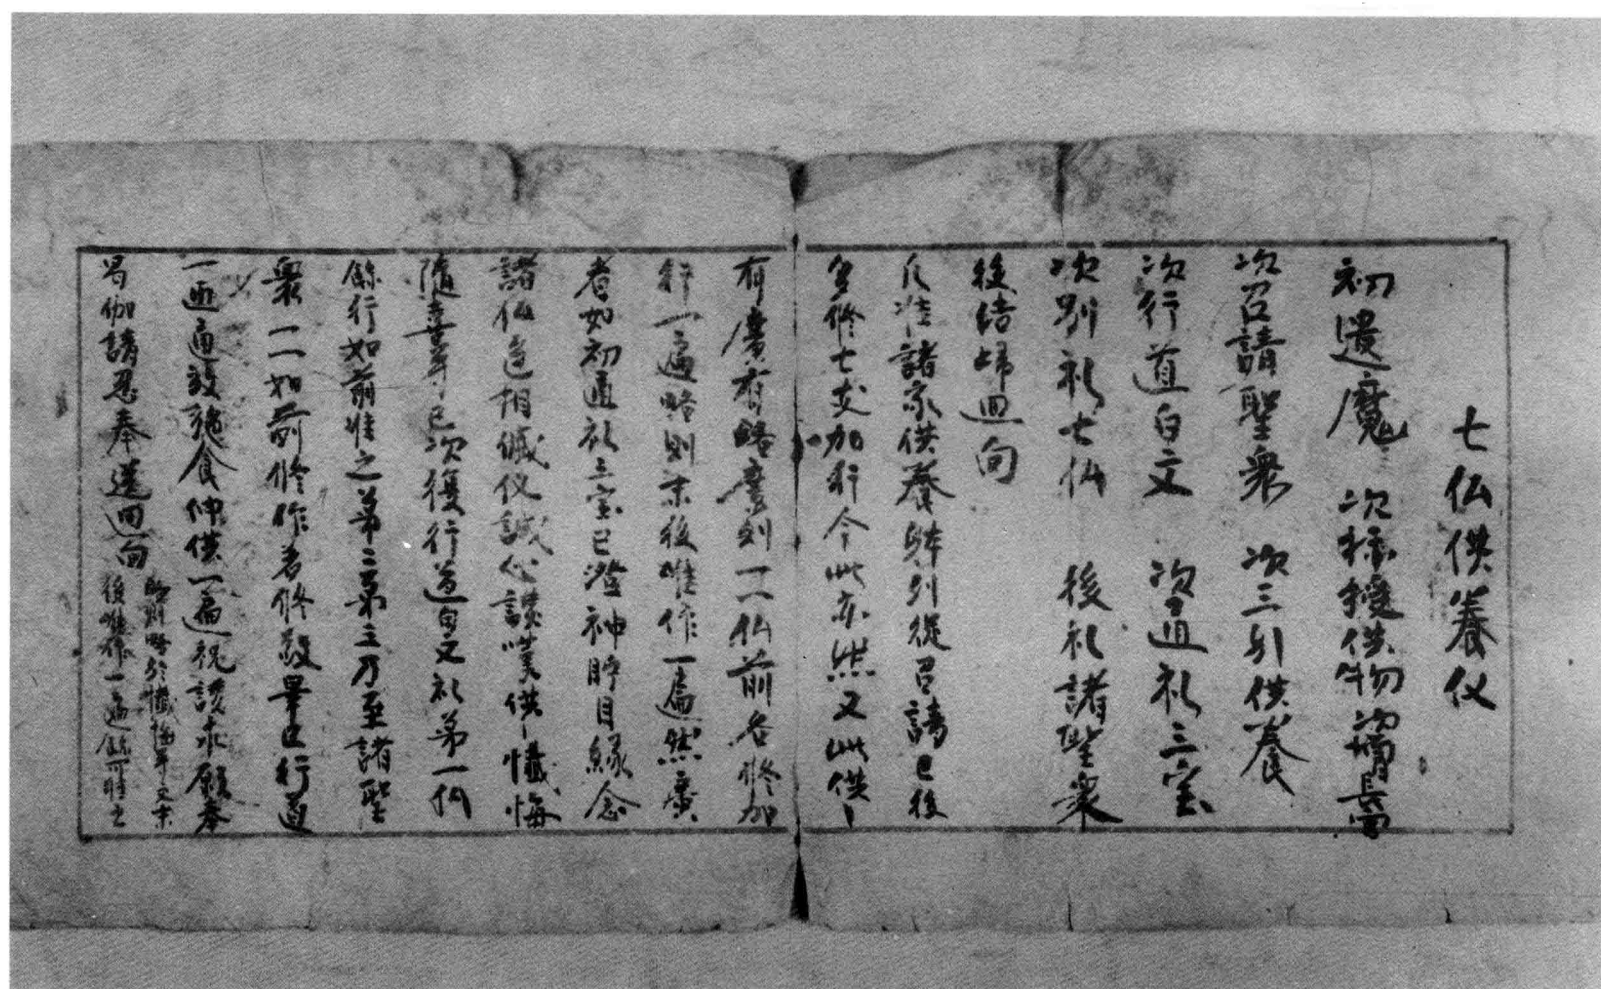 七仏供養仪
初遣魔 次攘擾供物 次
次召請聖衆 次三引供養
次行道白文 次通礼三宝
次別礼七仏 後礼諸聖衆
後结歸迴向
凡准諸家供養 列從召請已後
多修七 加行今此亦然又此供
有廣有略廣列一一仏前各修加
行一遍略則末後唯作一遍然廣
者如初通礼三宝已澄神 目緣念
諸仏色相儀仪誠心讃嘆供 懺悔
隨喜 已次復行道白文礼第一仏
餘行如前准之第二第三乃至諸聖
衆一一如前修作若修敬畢已行道
一匝通 食伸供一遍祝 求願奉
伽請忍奉送迴向
略則略於懺悔 文末
後唯作一遍餘可 之